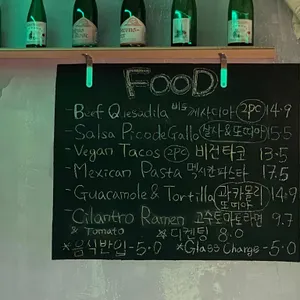 FOOD
- Beef Quesadila 비프 케사디아 2pc 14.9
- Salsa Pico de Gallo 살사&또띠아 15.5
- Vegan Tacos 2pc 비건타코 13.5
- Mexican Pasta 멕시칸 파스타 17.5
- Guacamole & Tortilla 과카몰리 또띠아 14.9
- Cilantro Ramen 고수토마토라면 9.7
& Tomato * 디켄팅 8.0
* 음식반입 - 5.0 * Glass Charge - 5.0